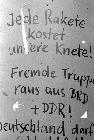 Jede Rakete
kostet
unsere Knete!
Fremde Truppe
raus aus BRD
+ DDR!
Deutschland darf